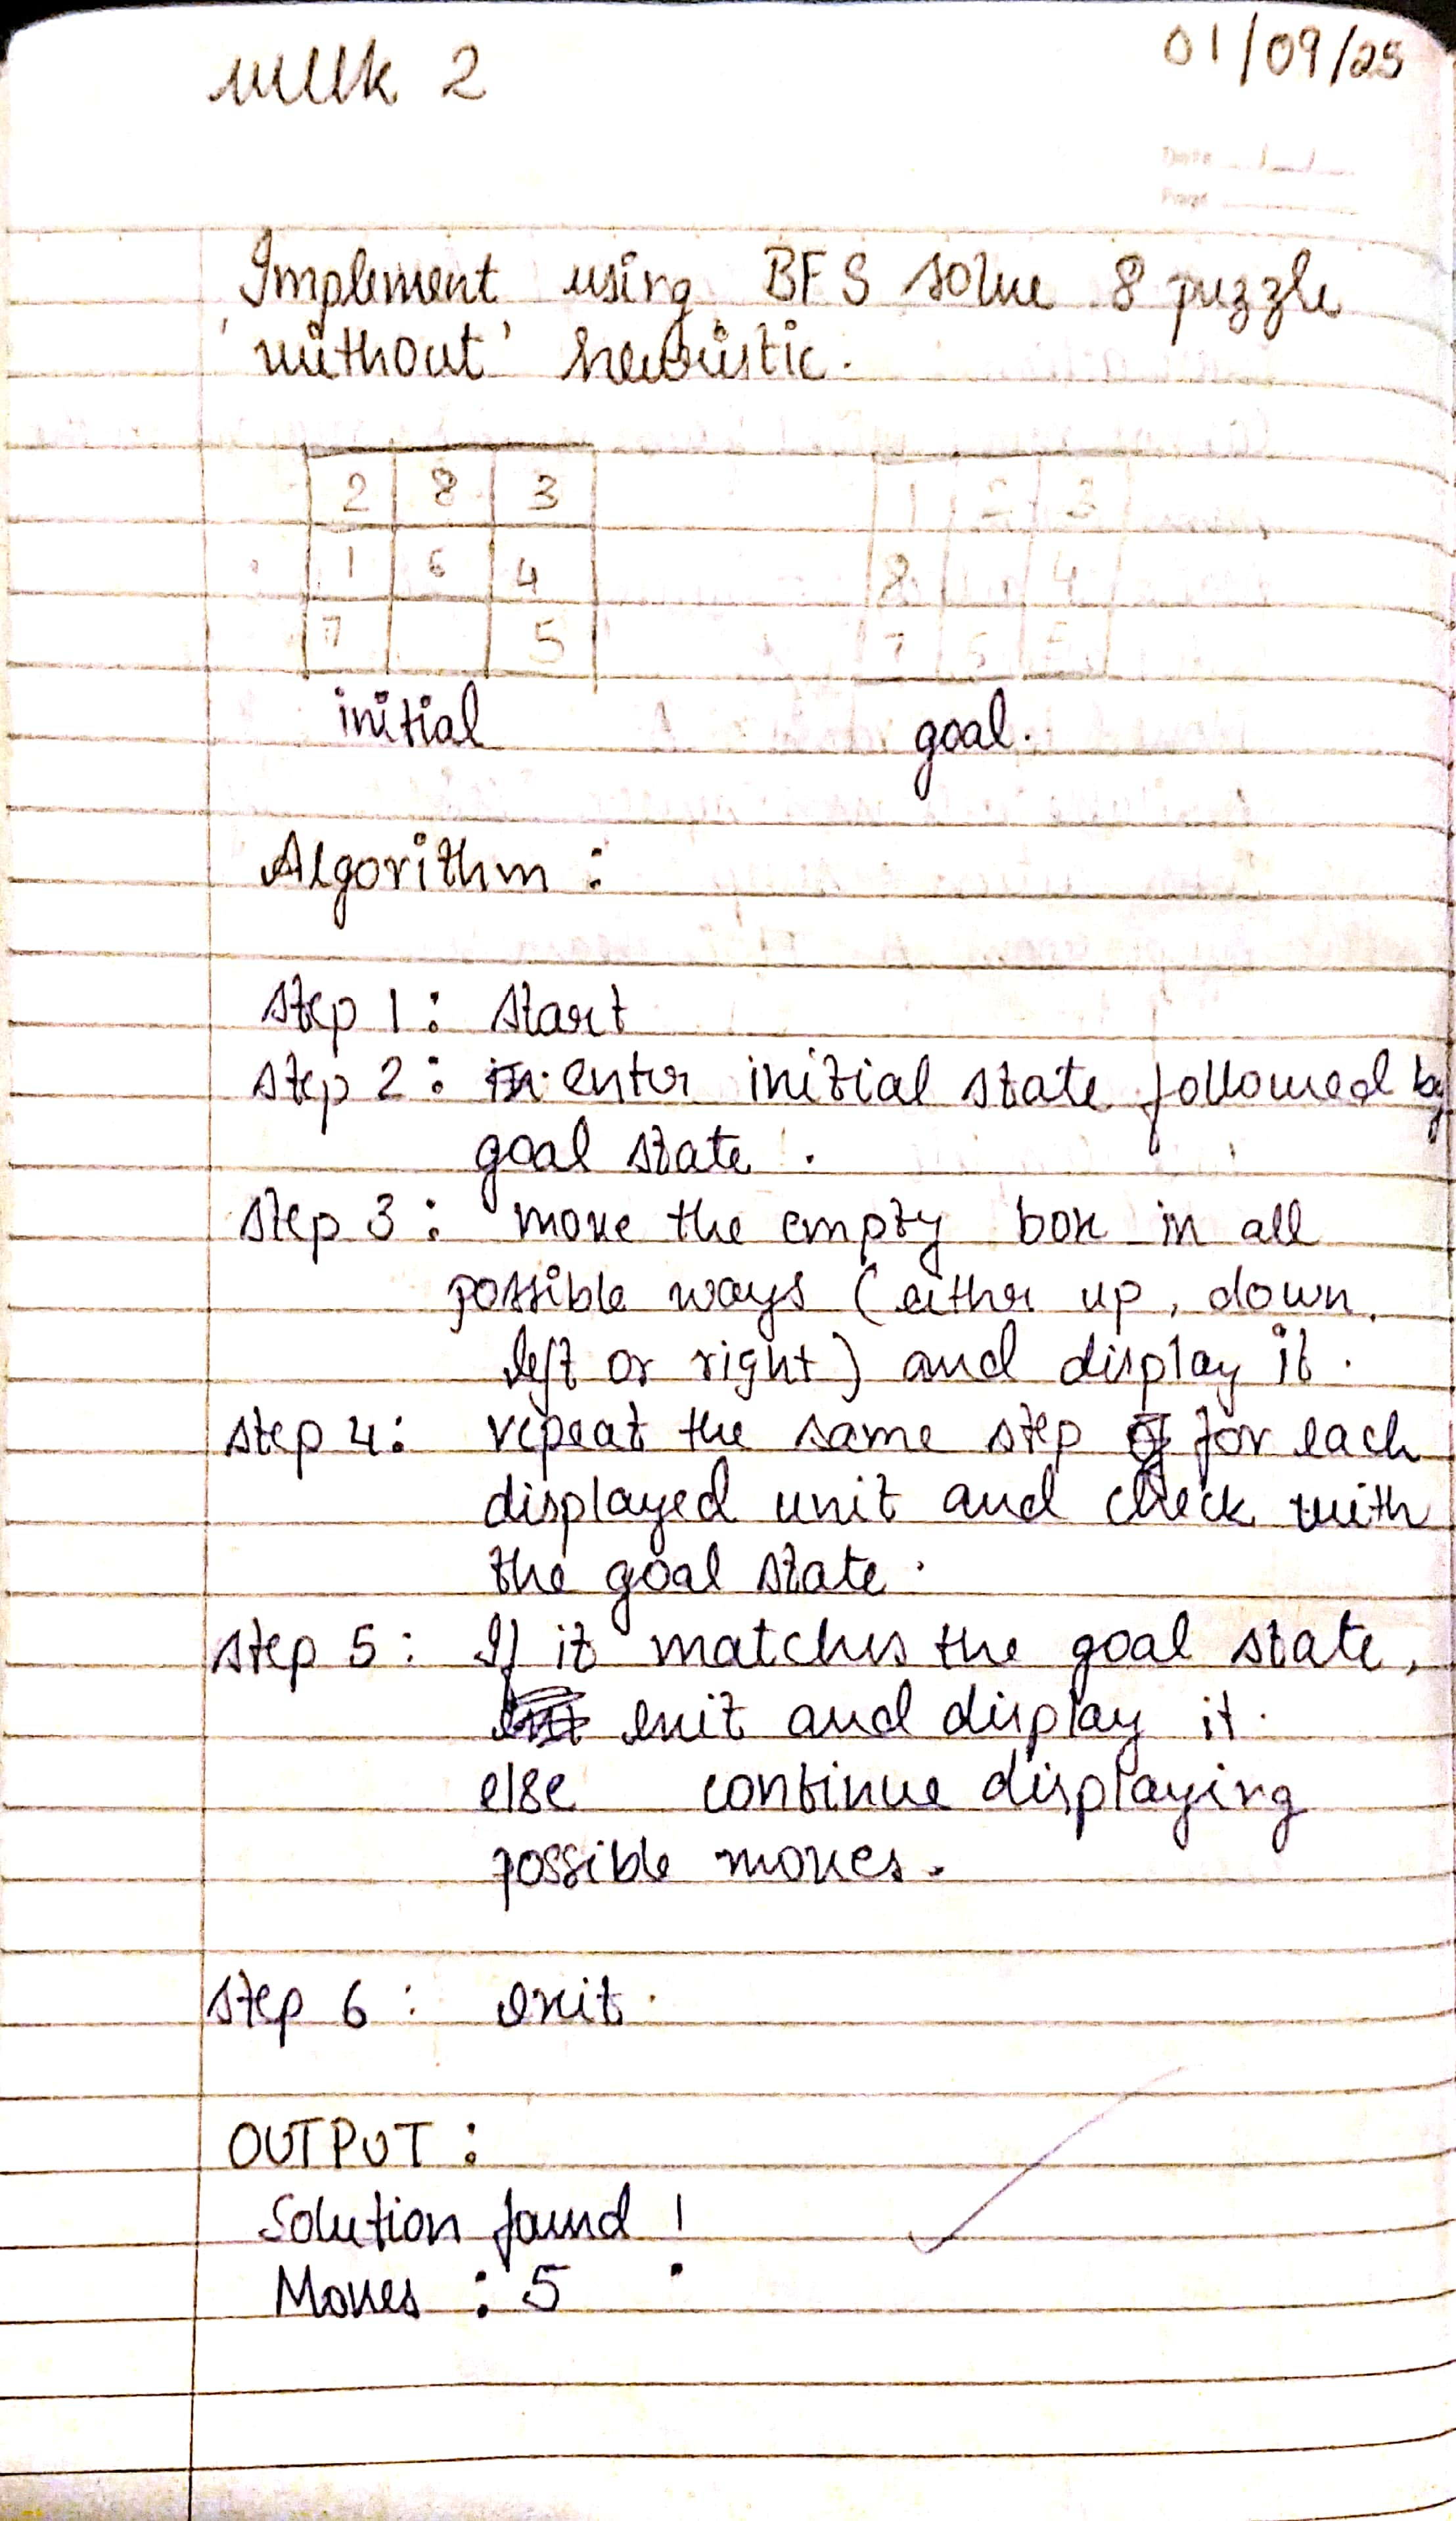 week 2
01/09/25
Date
Page
Implement using BFS solve 8 puzzle
'without' heuristic.
2 8 3
1 6 4
7 5
1 2 3
8 4
7 6 5
initial
goal.
Algorithm :
step 1 : start
step 2 : enter initial state followed by
goal state .
step 3 : move the empty box in all
possible ways (either up, down,
left or right) and display it .
step 4 : repeat the same step for each
displayed unit and check with
the goal state .
step 5 : If it matches the goal state,
exit and display it .
else continue displaying
possible moves .
step 6 : exit .
OUTPUT :
Solution found !
Moves : 5